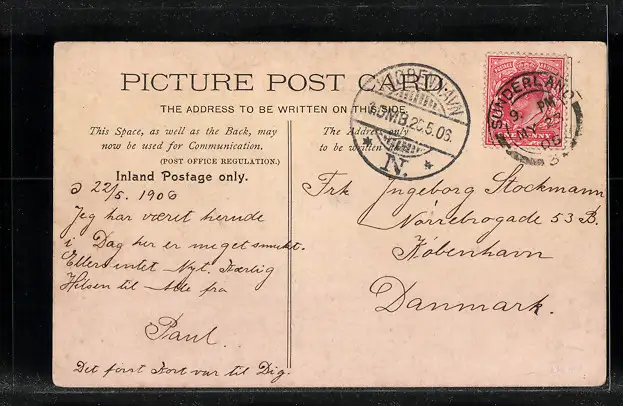 PICTURE POST CARD.
THE ADDRESS TO BE WRITTEN ON THIS SIDE.
This Space, as well as the Back, may
now be used for Communication.
(POST OFFICE REGULATION.)
Inland Postage only.
The Address only
to be written
d 22/5. 1906
Jeg har været herude
i Dag her er meget smukt.
Ellers intet Nyt. Kærlig
Hilsen til Alle fra
Paul.
Det först Kort var til Dig.
Frk Ingeborg Stockmann
Nörrebrogade 53 B.
Köbenhavn
Danmark.
KJØBENHAVN
5.06.
N.
SUNDERLAND
9 PM
MY